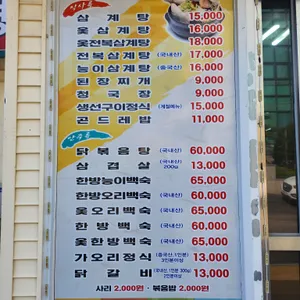 점심특선
삼계탕 15,000
옻삼계탕 16,000
옻전복삼계탕 18,000
전복삼계탕 (국내산) 17,000
능이삼계탕 (중국산) 16,000
된장찌개 9,000
청국장 9,000
생선구이정식 (계절메뉴) 15,000
곤드레밥 11,000
닭볶음탕 (국내산) 60,000
삼겹살 (국내산) 200g 13,000
한방능이백숙 65,000
한방오리백숙 (국내산) 60,000
옻오리백숙 (국내산) 65,000
한방백숙 (국내산) 60,000
옻한방백숙 (국내산) 65,000
가오리정식 (중국산, 1인분) 2인분이상 13,000
닭갈비 (국내산, 1인분 300g) 2인분이상 13,000
사리 2,000원 · 볶음밥 2,000원